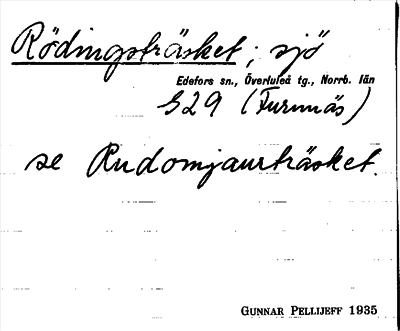 Rödingsträsket; sjö
Edefors sn., Överluleå tg., Norrb. län
G29 (Furunäs)
se Rudomjaurträsket.
GUNNAR PELLIJEFF 1935